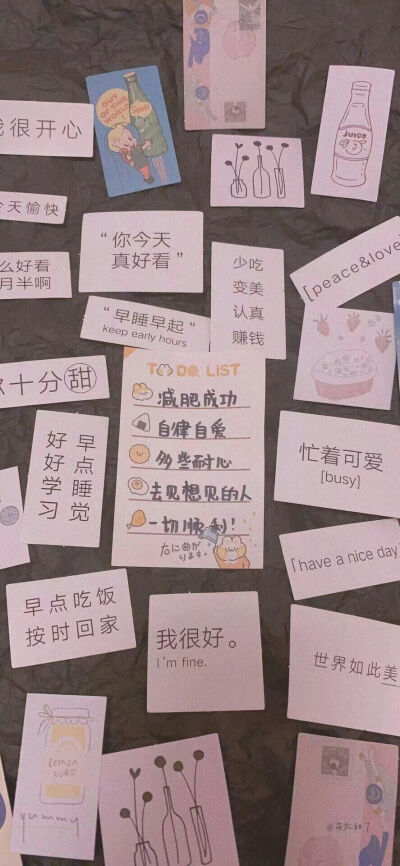 OUT
OF THIS
WORLD
我很开心
JUICE
今天愉快
“你今天
真好看”
少吃
变美
认真
赚钱
[peace&love]
么好看
月半啊
“早睡早起”
keep early hours
TO DO LIST
减肥成功
自律自爱
多些耐心
去见想见的人
一切顺利！
右に曲が
ります。
你十分甜
好好学习
早点睡觉
忙着可爱
[busy]
「have a nice day
早点吃饭
按时回家
我很好。
I'm fine.
世界如此美
lemon
CURD
yummy